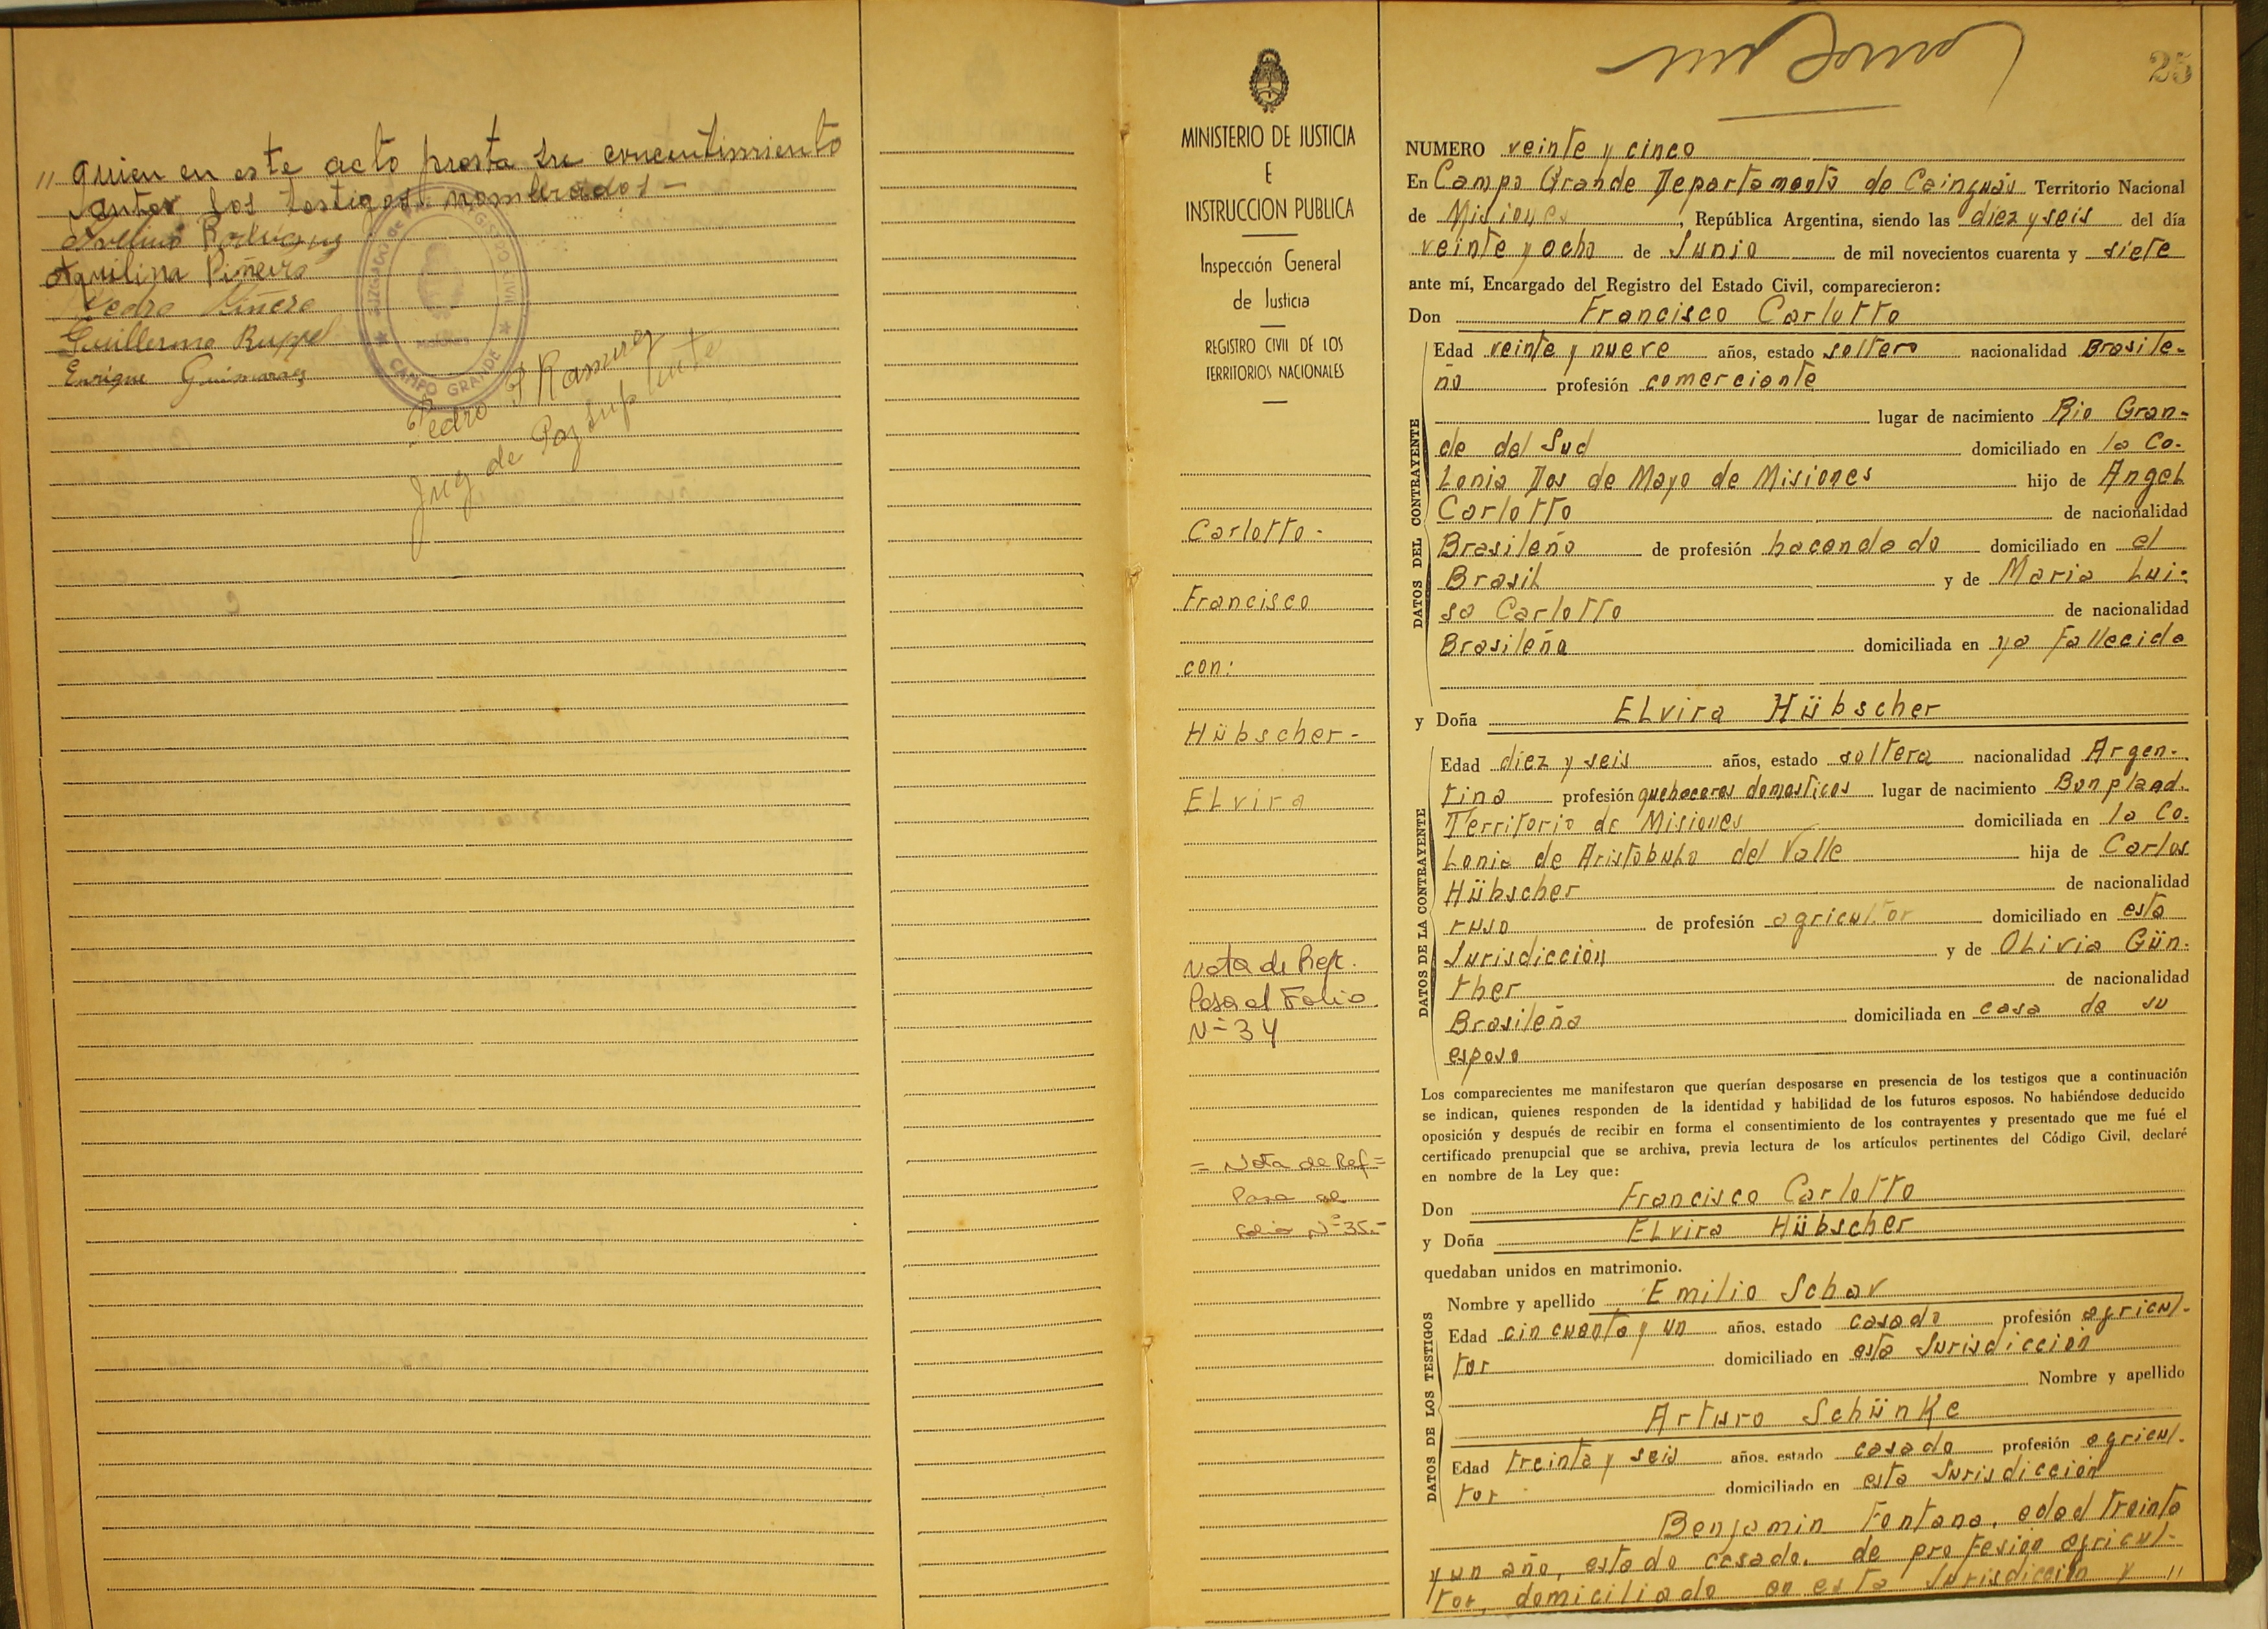 " quien en este acto presta su concentimiento
antes los testigos nombrados -
Avelino Rodriguez
Aquilina Piñeiro
Pedro Piñero
Guillermo Ruppel
Enrique Guimaraes
REGISTRO CIVIL
CAMPO GRANDE
Pedro F Ramirez
Juez de Paz Suplente
MINISTERIO DE JUSTICIA
E
INSTRUCCION PUBLICA
Inspección General
de Justicia
REGISTRO CIVIL DE LOS
TERRITORIOS NACIONALES
Carlotto -
Francisco
con:
Hübscher -
Elvira
Nota de Ref.
Pasa al Folio
Nº 34
= Nota de Ref =
Pasa al
folio Nº 35.-
25
NUMERO veinte y cinco
En Campo Grande Departamento de Cainguás Territorio Nacional
de Misiones, República Argentina, siendo las diez y seis del día
veinte y ocho de Junio de mil novecientos cuarenta y siete
ante mí, Encargado del Registro del Estado Civil, comparecieron:
Don Francisco Carlotto
DATOS DEL CONTRAYENTE
Edad veinte y nueve años, estado soltero nacionalidad Brasile-
ño profesión comerciante
lugar de nacimiento Rio Gran-
de del Sud domiciliado en la Co-
lonia Dos de Mayo de Misiones hijo de Angel
Carlotto de nacionalidad
Brasileño de profesión hacendado domiciliado en el
Brasil y de Maria Lui-
sa Carlotto de nacionalidad
Brasileña domiciliada en ya fallecida
y Doña Elvira Hübscher
DATOS DE LA CONTRAYENTE
Edad diez y seis años, estado soltera nacionalidad Argen-
tina profesión quehaceres domesticos lugar de nacimiento Bonpland.
Territorio de Misiones domiciliada en la Co-
lonia de Aristobulo del Valle hija de Carlos
Hübscher de nacionalidad
ruso de profesión agricultor domiciliado en esta
Jurisdicción y de Olivia Gün-
ther de nacionalidad
Brasileña domiciliada en casa de su
esposo
Los comparecientes me manifestaron que querían desposarse en presencia de los testigos que a continuación
se indican, quienes responden de la identidad y habilidad de los futuros esposos. No habiéndose deducido
oposición y después de recibir en forma el consentimiento de los contrayentes y presentado que me fué el
certificado prenupcial que se archiva, previa lectura de los artículos pertinentes del Código Civil, declaré
en nombre de la Ley que:
Don Francisco Carlotto
y Doña Elvira Hübscher
quedaban unidos en matrimonio.
DATOS DE LOS TESTIGOS
Nombre y apellido Emilio Schav
Edad cincuenta y un años, estado casado profesión agricul-
tor domiciliado en esta Jurisdicción
Nombre y apellido
Arturo Schünke
Edad treinta y seis años, estado casado profesión agricul-
tor domiciliado en esta Jurisdicción
Benjamin Fontana, edad treinta
y un año, estado casado, de profesión agricul-
tor, domiciliado en esta Jurisdicción y "